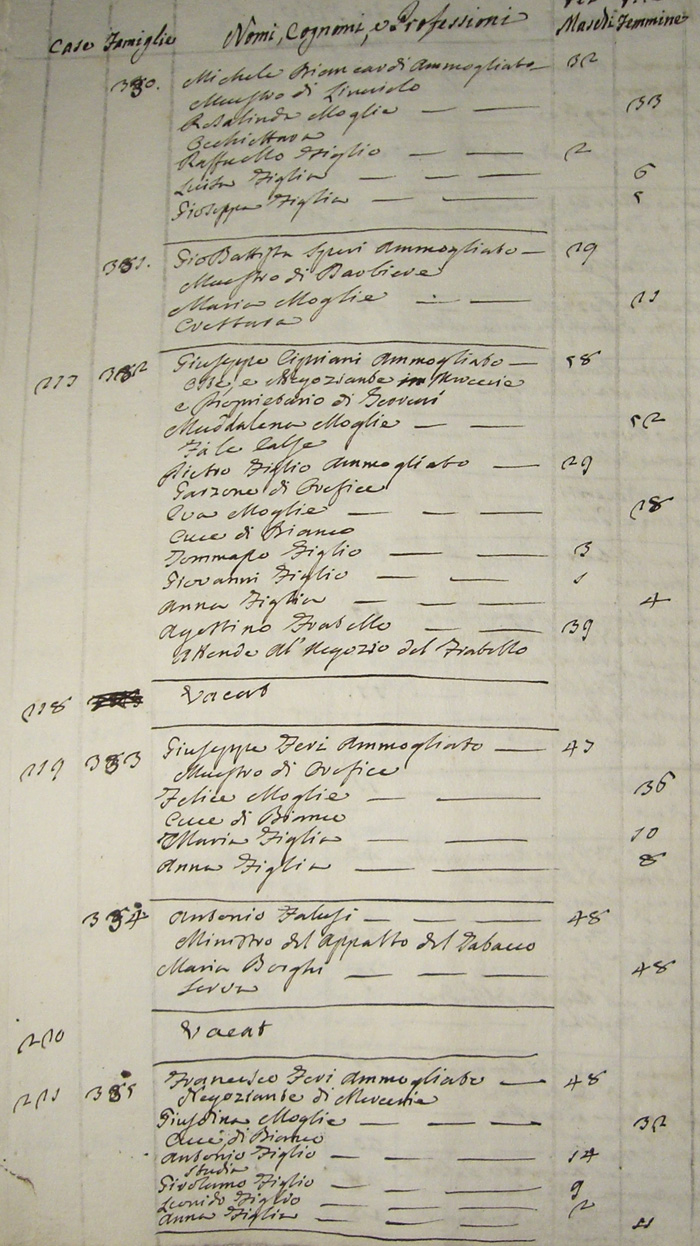 Case Famiglie Nomi, Cognomi, e Professioni Maschi Femmine
380. Michele Biancardi Ammogliato 32
Maestro di
Rosalinda Moglie 33
Raffaello Figlio 2
Luisa Figlia 6
Gioseppa Figlia 5
381. Gio Battista Ammogliato 29
Maestro di Barbiere
Maria Moglie 21
Crestara
382 Giuseppe Cipriani Ammogliato 58
Negoziante in Mercerie
e Proprietario di
Maddalena Moglie 52
Fà le Calse
Pietro Figlio Ammogliato 29
Garzone di Orefice
Eva Moglie 28
Cuce di Bianco
Tommaso Figlio 3
Giovanni Figlio 1
Anna Figlia 4
Agostino Fratello 39
Attende al Negozio del Fratello
218 Vacat
219 383 Giuseppe Feri Ammogliato 47
Maestro di Orefice
Felice Moglie 36
Cuce di Bianco
Maria Figlia 10
Anna Figlia 8
384 Antonio 48
Ministro del Appalto del Tabacco
Maria Borghi 48
Serva
220 Vacat
221 385 Francesco Feri Ammogliato 48
Negoziante di Mercerie
Moglie 32
Cuce di Bianco
Antonio Figlio 14
studia
Girolamo Figlio 9
Leonida Figlio 2
Anna Figlia 11